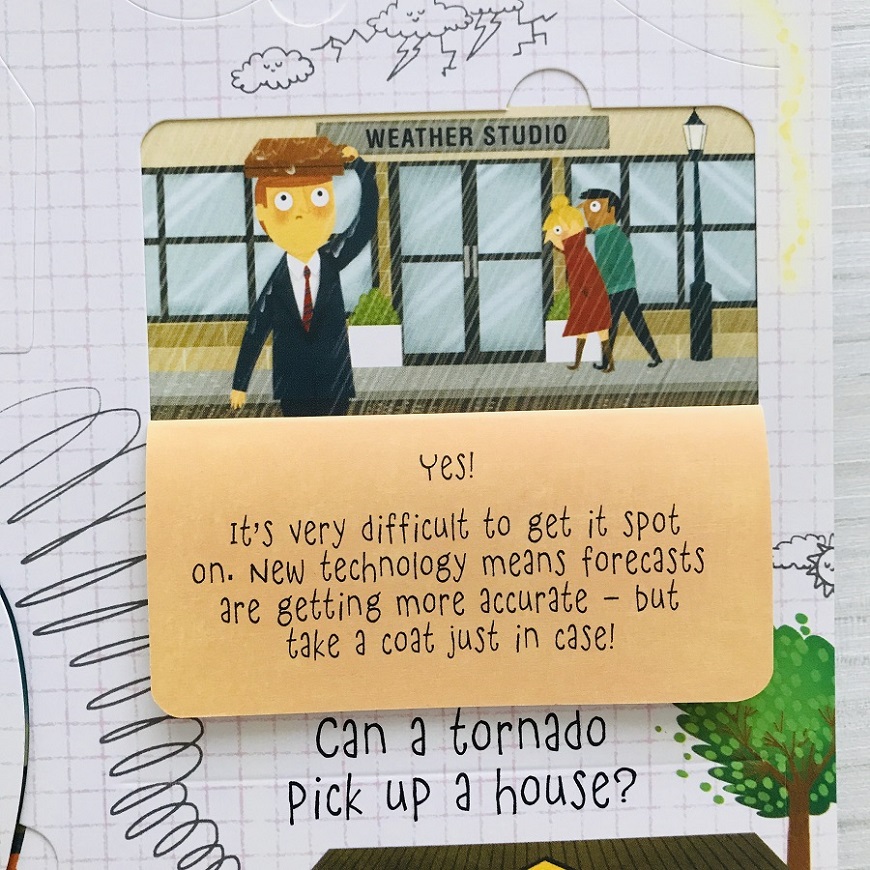 WEATHER STUDIO
Yes!
It's very difficult to get it spot
on. New technology means forecasts
are getting more accurate – but
take a coat just in case!
Can a tornado
pick up a house?